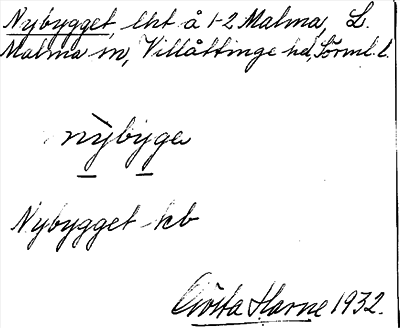 Nybygget, lht å 1-2 Malma, L.
Malma sn, Villåttinge hd, Sörml. l.
nỳbyge
Nybygget kb
Gösta Harne 1932.